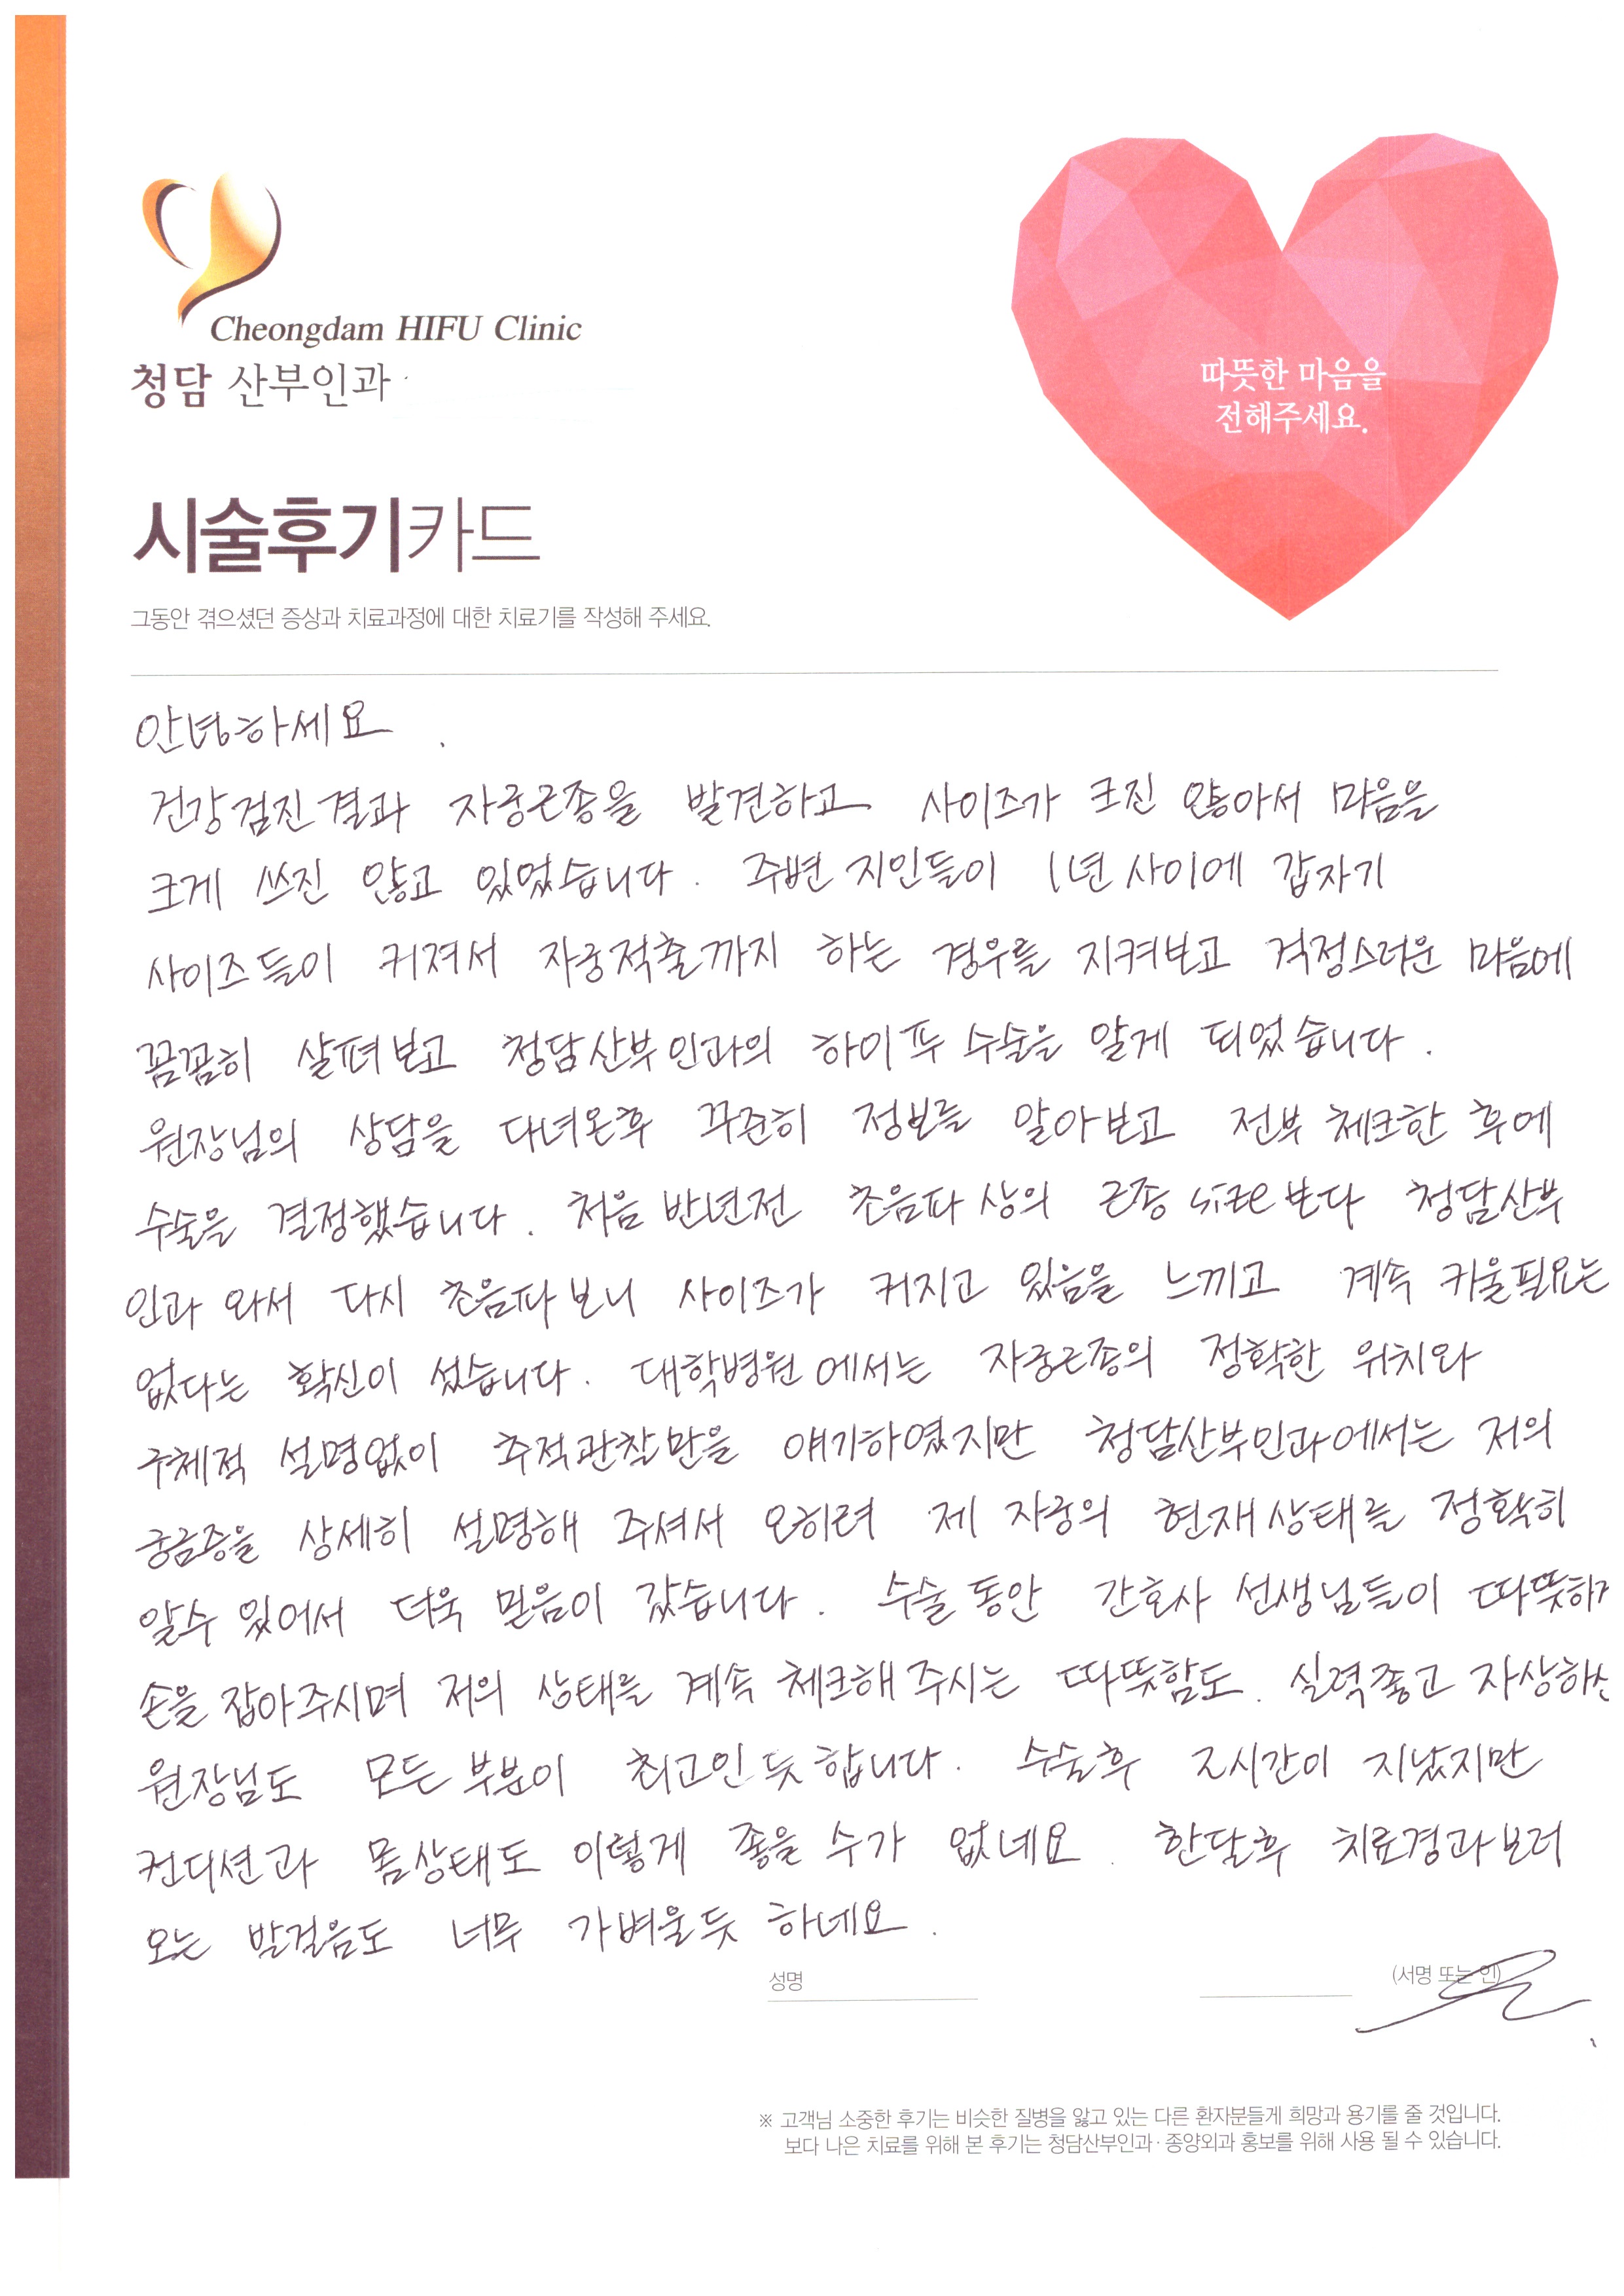 Cheongdam HIFU Clinic
청담 산부인과
따뜻한 마음을
전해주세요.
시술후기카드
그동안 겪으셨던 증상과 치료과정에 대한 치료기를 작성해 주세요.
안녕하세요.
건강검진결과 자궁근종을 발견하고 사이즈가 크진 않아서 마음을
크게 쓰진 않고 있었습니다. 주변 지인들이 1년 사이에 갑자기
사이즈들이 커져서 자궁적출까지 하는 경우를 지켜보고 걱정스러운 마음에
꼼꼼히 살펴보고 청담산부인과의 하이푸 수술을 알게 되었습니다.
원장님의 상담을 다녀온후 꾸준히 정보를 알아보고 전부 체크한 후에
수술을 결정했습니다. 처음 반년전 초음파 상의 근종 size보다 청담산부
인과 와서 다시 초음파보니 사이즈가 커지고 있음을 느끼고 계속 키울필요는
없다는 확신이 섰습니다. 대학병원에서는 자궁근종의 정확한 위치와
구체적 설명없이 추적관찰만을 얘기하였지만 청담산부인과에서는 저의
궁금증을 상세히 설명해 주셔서 오히려 제 자궁의 현재상태를 정확히
알수 있어서 더욱 믿음이 갔습니다. 수술 동안 간호사 선생님들이 따뜻하게
손을 잡아주시며 저의 상태를 계속 체크해 주시는 따뜻함도. 실력좋고 자상하신
원장님도 모든 부분이 최고인 듯 합니다. 수술후 2시간이 지났지만
컨디션과 몸상태도 이렇게 좋을 수가 없네요. 한달후 치료경과보러
오는 발걸음도 너무 가벼울듯 하네요.
성명 (서명 또는 인)
※ 고객님 소중한 후기는 비슷한 질병을 앓고 있는 다른 환자분들게 희망과 용기를 줄 것입니다.
보다 나은 치료를 위해 본 후기는 청담산부인과·종양외과 홍보를 위해 사용 될 수 있습니다.